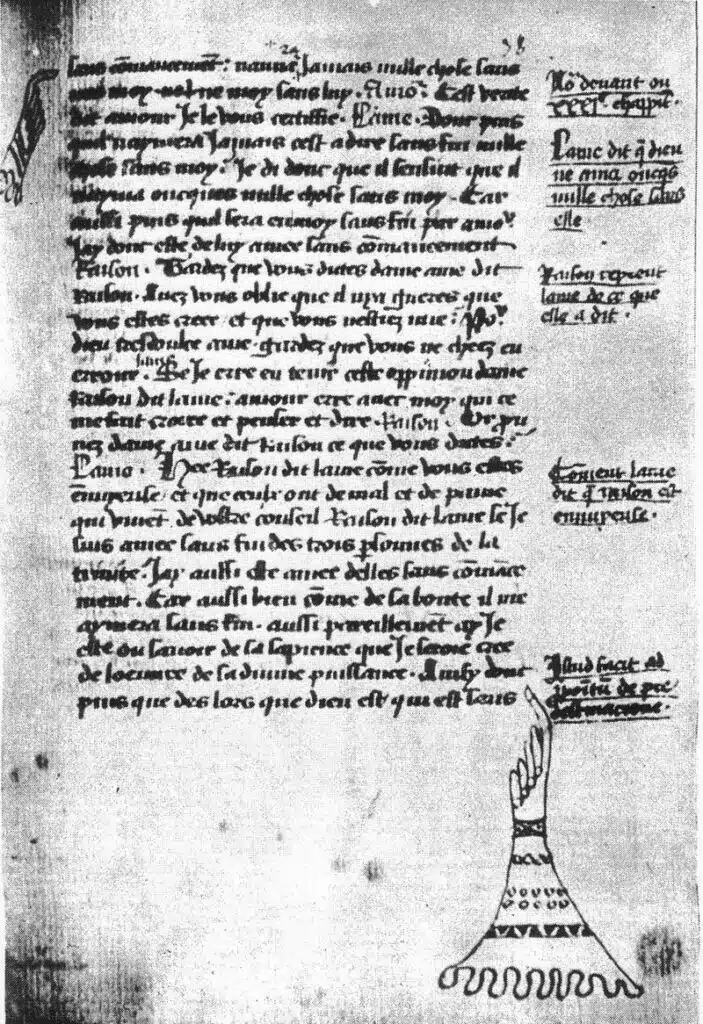 sans cōmancemēt : namna Jamais nulle chose sans
moy ne moy sans luy . Amo᷑ : C'est verite
dit amour Je le vous certiffie . Lame . Donc puis
quil naymera Jamais cest a dire sans fin nulle
chose sans moy . Je di donc que il senssuit que il
nayma oncques nulle chose sans moy . Car
aussi puis quil sera en moy sans fin par amo᷑
Jay donc este de luy amee sans cōmancement
Raison . Gardez que vous dictes dame ame dit
Raison . Auez vous oblie que il nya gueres que
vous estes creee et que vous nestiez mie : Po᷑
dieu tresdoulce ame gardez que vous ne cheez en
erreur . Se Je erre en tenir ceste oppinion dame
Raison dit lame : amour erre auec moy qui ce
me fait croire et penser et dire . Raison . Or prou
uez dame ame dit Raison ce que vous dictes :
Lame . Hee Raison dit lame cōme vous estes
ennuyeuse et que ceulx ont de mal et de paine
qui viuēt de vostre conseil Raison dit lame se Je
suis amee sans fin des trois ꝑsonnes de la
trinite . Jay aussi este amee delles sans cōmāce
ment . Car aussi bien cōme de sa bonte il me
aymera sans fin . aussi pareillemēt ay Je
este ou sauoir de sa sapience que Je seroie cree
de loeuure de sa diuine puissance . Ainsy donc
puis que des lors que dieu est qui est sans
No᷑ deuant ou
xxxiͤ chappit̄ .
Lame dit q̄ dieu
ne ama oncqs
nulle chose sans
elle .
Raison reprent
lame de ce que
elle a dit .
Cōment lame
dit q̄ raison est
ennuyeuse .
Istud facit ad
de pre
destinacione .